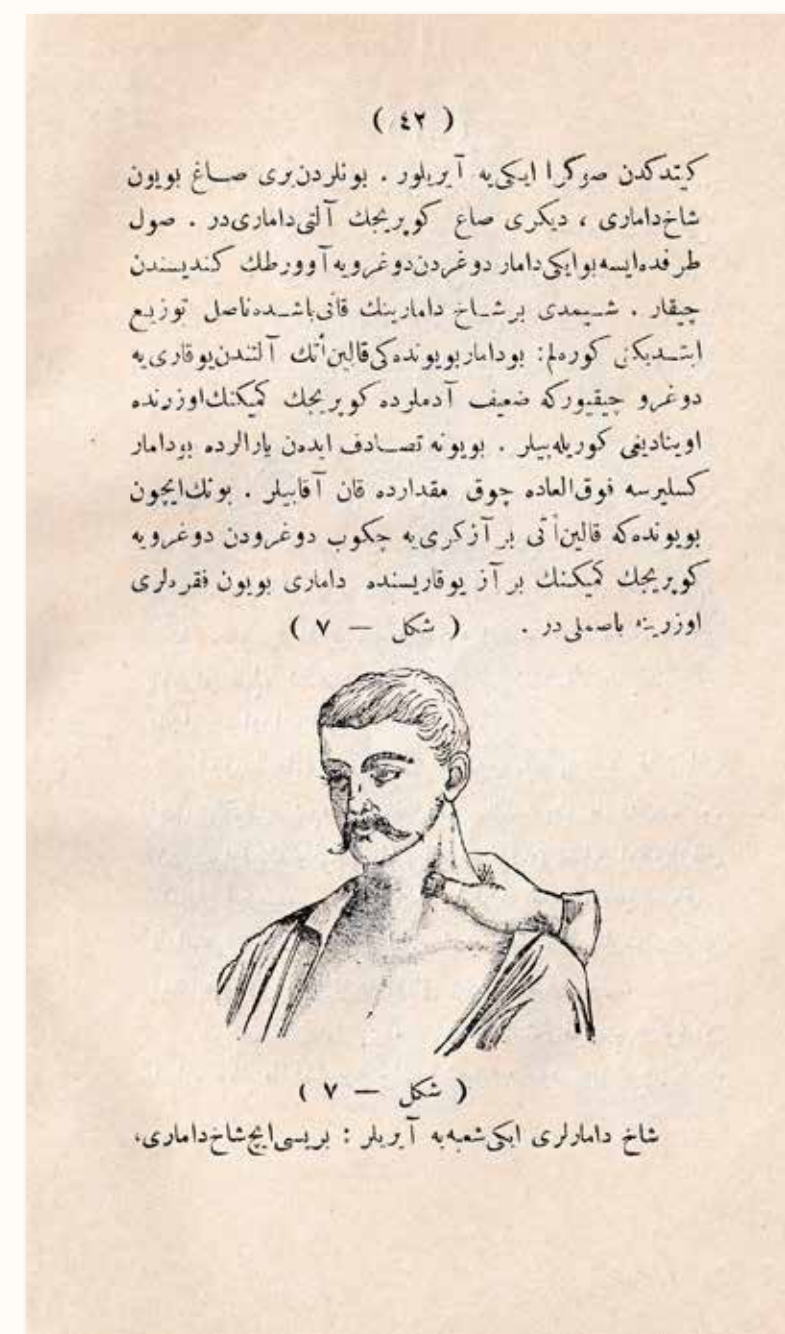 ( ٤٢ )
كیتدكدن صوكرا ایكی‌یه آیریلور . بونلردن بری صاغ بویون
شاخ‌داماری ، دیكری صاع كوپریجك آلتی‌داماری‌در . صول
طرفده‌ایسه‌بوایكی‌دامار دوغردن‌دوغرویه‌آوورطك كندیسندن
چیقار . شیمدی برشاخ دامارینك قانی‌باشده‌ناصل توزیع
ایتدیكنی كوره‌لم: بودامار‌بویونده‌كی‌قالین‌أتك آلتندن‌یوقاری‌یه
دوغرو چیقیوركه ضعیف آدملرده كوپریجك كمیكنك‌اوزرنده
اوینادیغی كوریله‌بیلر . بویونه تصادف ایده‌ن یارالرده بودامار
كسلیرسه فوق‌العاده چوق مقدارده قان آقابیلر . بونك‌ایچون
بویونده‌كه قالین‌أتی برآزكری‌یه چكوب دوغرودن دوغرویه
كوپریجك كمیكنك برآز یوقاریسنده داماری بویون فقره‌لری
اوزرینه باصملی‌در . ( شكل — ٧ )
( شكل — ٧ )
شاخ دامارلری ایكی‌شعبه‌یه آیریلر : بریسی‌ایچ‌شاخ‌داماری،